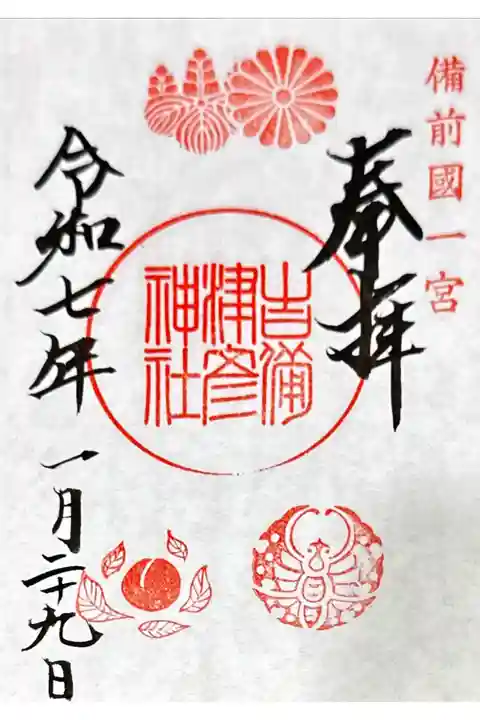 備前國一宮
奉拝
吉備
津彦
神社
令和七年
一月二十九日